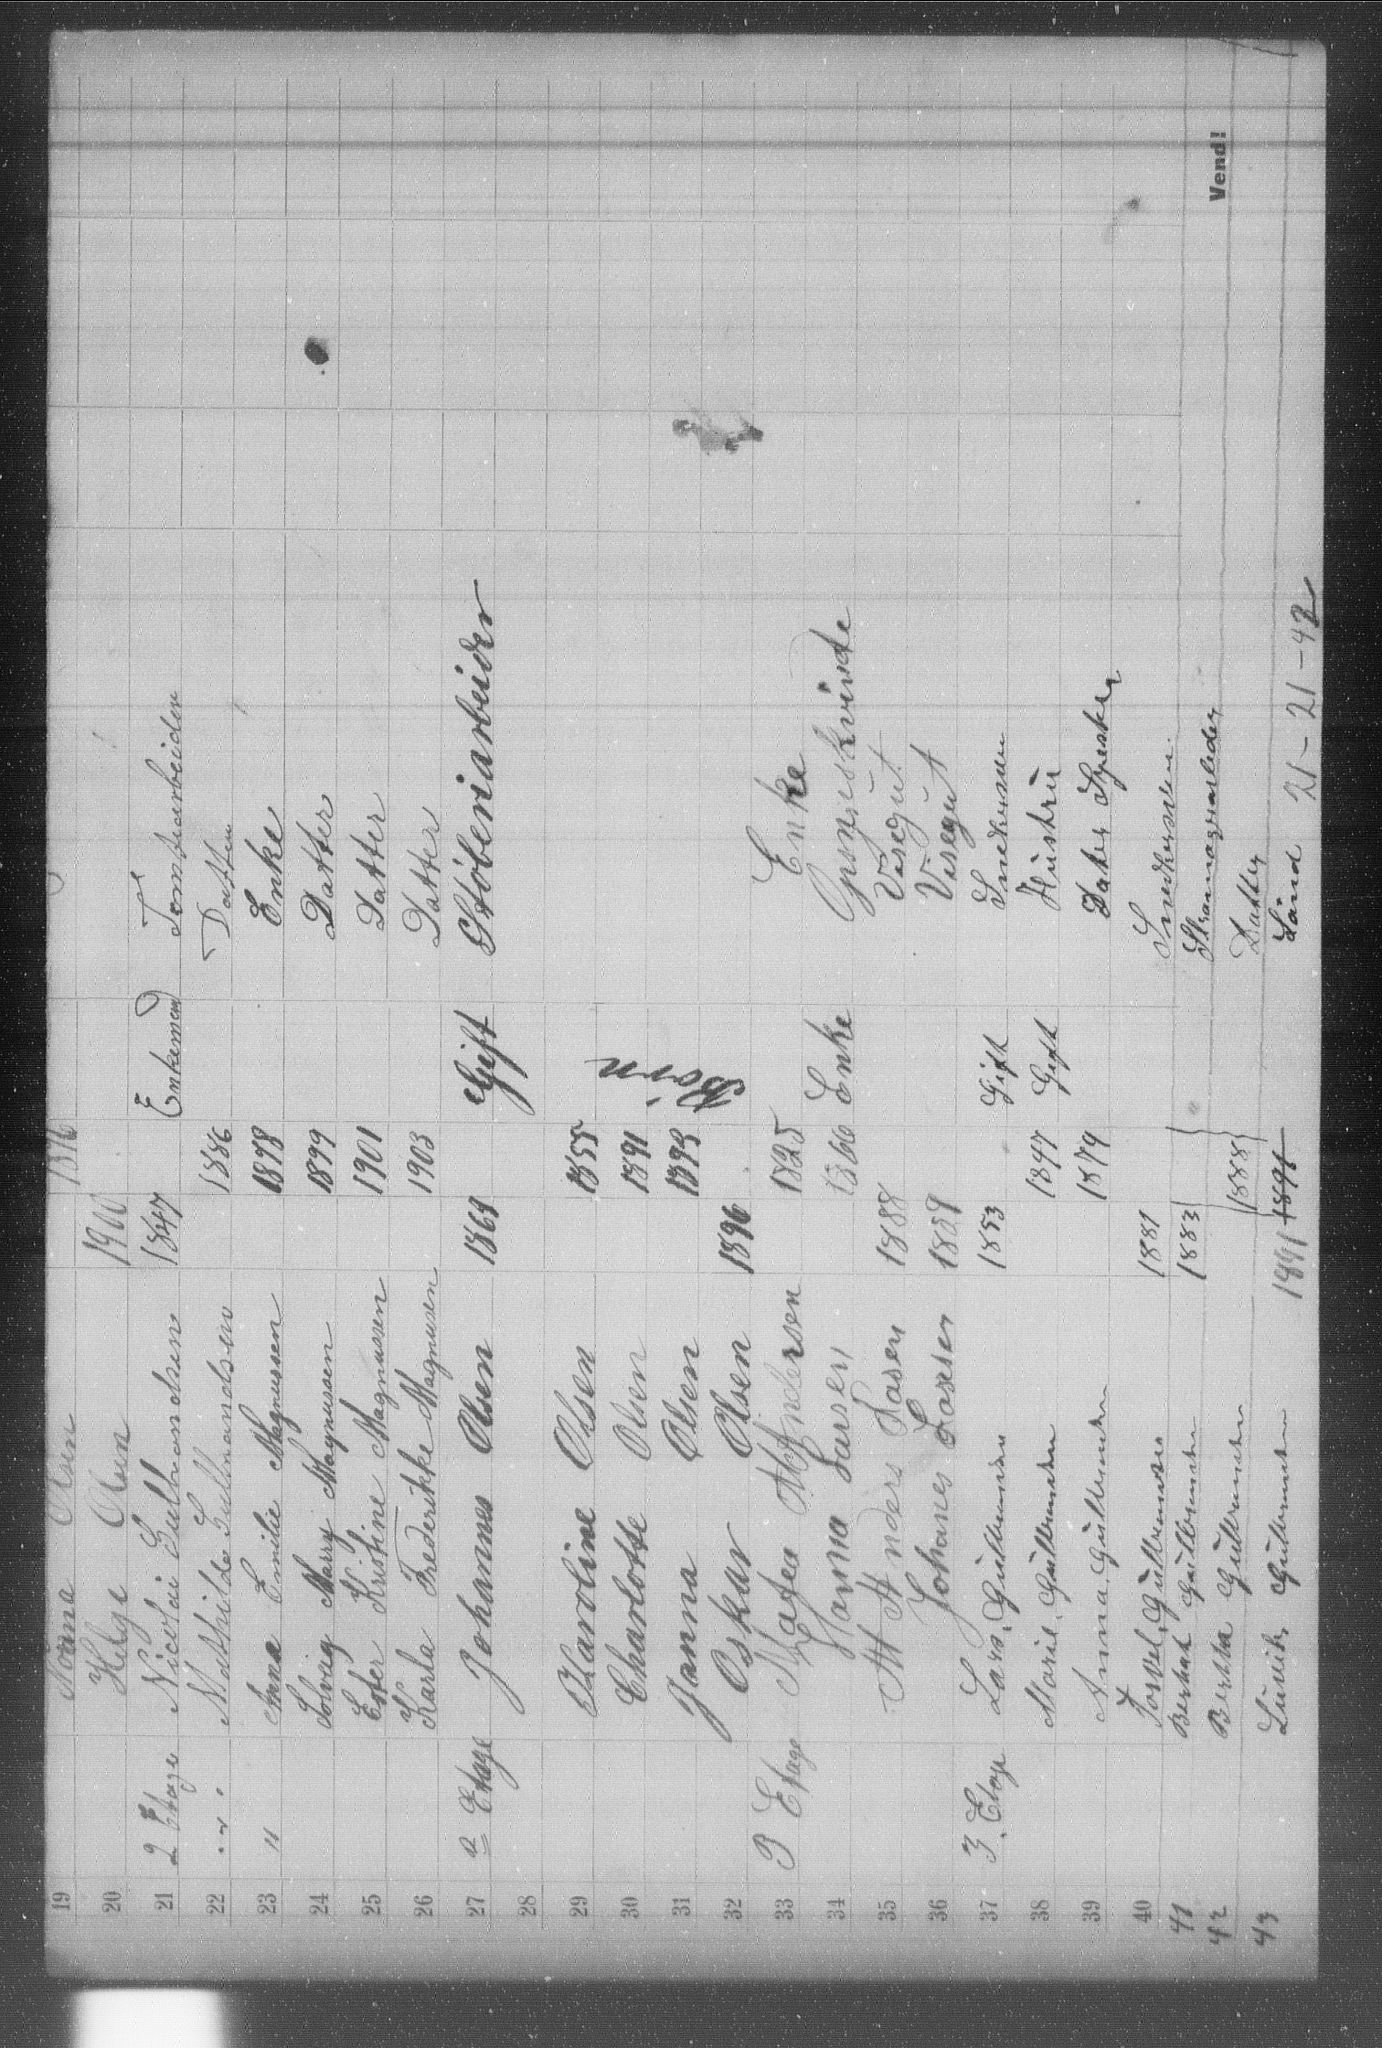 19 Olsen 1876
20 Helge Olsen 1900
21 2 Etage Nicolai Gulbrandsen 1847 Enkemand Tomtearbeider
22 Mathilde Gulbrandsen 1886 Datter
23 " Anna Emilie Magnussen 1878 Enke
24 Solveig Marry Magnussen 1899 Datter
25 Ester Kristine Magnussen 1901 Datter
26 Karla Frederikke Magnusen 1903 Datter
27 2 Etage Johannes Olsen 1864 Gift Støberiarbeider
28
29 Karoline Olsen 1855
30 Charlotte Olsen 1891 Børn
31 Janna Olsen 1893
32 Oskar Olsen 1896
33 3 Etage Matea Andersen 1825 Enke
34 Hanna Larsen 1866 Enke
35 Anders Lasen 1888 Visegut
36 Johanes Larsen 1889 Visegut
37 3. Etage Lars, Gulbrandsen 1853 Gift Snedkersven
38 Marie, Gulbrandsen 1847 Gift Hustru
39 Anna, Gulbrandsen 1879 Dater Syerske
40 1881 Snedkersven.
41 1883
42 Bertha 1888 Datter
43 1891 1891 Sönd 21-21-42
Vend!